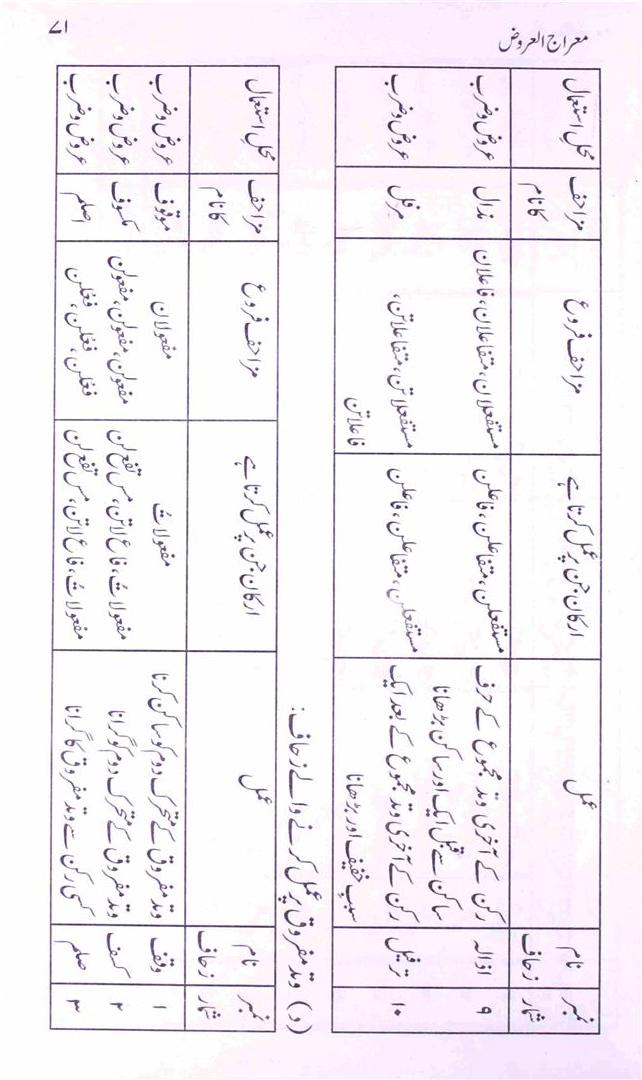 معراج العروض
۷۱
نمبر شمار | نام زحاف | عمل | ارکان جن پر عمل کرتا ہے | مزاحف فروع | مزاحف کا نام | محلِ استعمال
۹ | اذالہ | رکن کے آخری وتد مجموع کے حرف ساکن سے قبل ایک اور ساکن بڑھانا | مستفعلن، متفاعلن، فاعلن | مستفعلان، متفاعلان، فاعلان | مذال | عروض و ضرب
۱۰ | ترفیل | رکن کے آخری وتد مجموع کے بعد ایک سببِ خفیف اور بڑھانا | مستفعلن، متفاعلن، فاعلن | مستفعلاتن، متفاعلاتن، فاعلاتن | مرفل | عروض و ضرب
(د) وتد مفروق پر عمل کرنے والے زحاف:
نمبر شمار | نام زحاف | عمل | ارکان جن پر عمل کرتا ہے | مزاحف فروع | مزاحف کا نام | محلِ استعمال
۱ | وقف | وتد مفروق کے متحرک دوم کو ساکن کرنا | مفعولاتُ | مفعولان | موقوف | عروض و ضرب
۲ | کسف | وتد مفروق کے متحرک دوم کو گرانا | مفعولاتُ، فاع لاتن، مس تفع لن | مفعولن، مفعولن، مفعولن | مکسوف | عروض و ضرب
۳ | صلم | کسی رکن سے وتد مفروق کا گرانا | مفعولاتُ، فاع لاتن، مس تفع لن | فعْلن، فعْلن، فعْلن | اصلم | عروض و ضرب